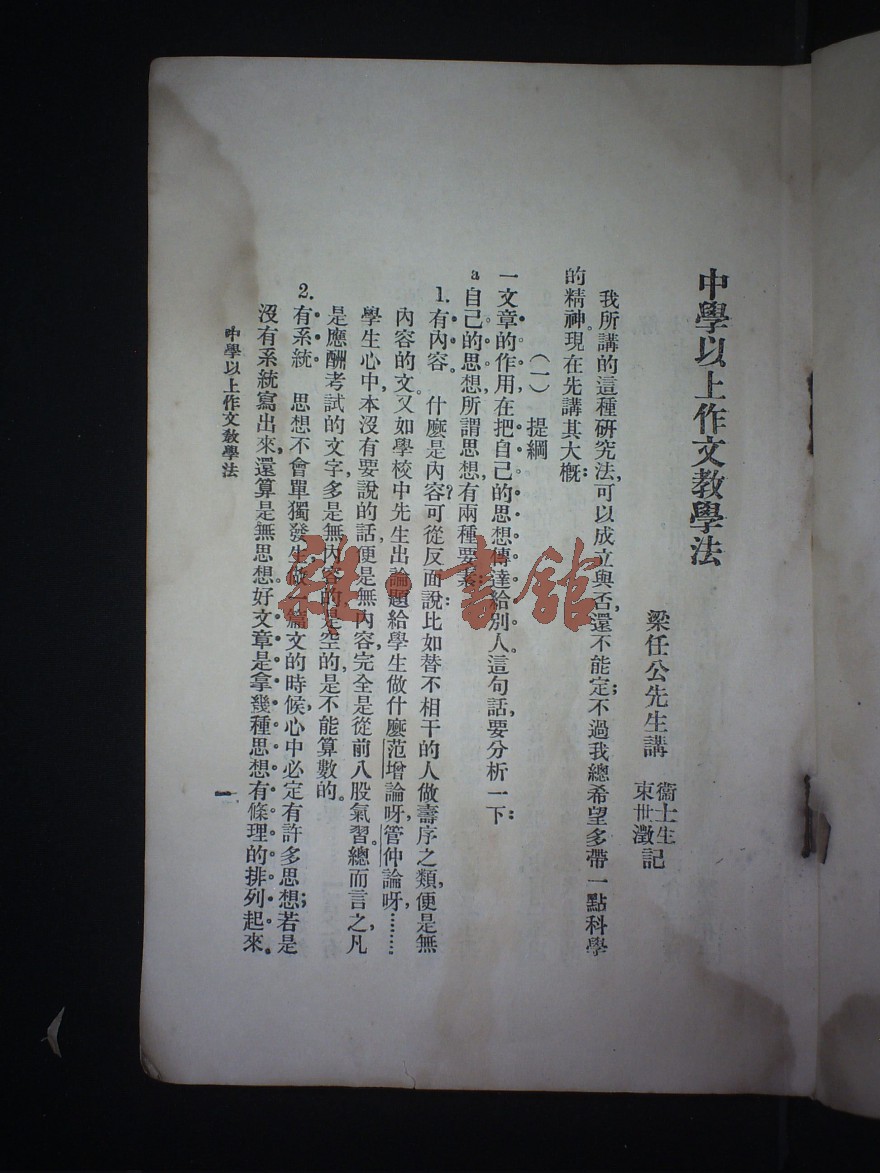 中學以上作文教學法
梁任公先生講
衞士生
束世澂記
我所講的這種研究法,可以成立與否,還不能定;不過我總希望多帶一點科學
的精神。現在先講其大概:
(一) 提綱
一文章的作用,在把自己的思想傳達給別人。這句話,要分析一下:
a自己的思想,所謂思想,有兩種要素:
1.有內容。 什麼是內容?可從反面說:比如替不相干的人做壽序之類,便是無
內容的文。又如學校中先生出論題給學生做什麼范增論呀,管仲論呀,………
學生心中本沒有要說的話,便是無內容,完全是從前八股氣習。總而言之,凡
是應酬考試的文字,多是無內容的,是空的,是不能算數的。
2.有系統。 思想不會單獨發生,做一篇文的時候,心中必定有許多思想;若是
沒有系統寫出來,還算是無思想。好文章是拿幾種思想有條理的排列起來。
中學以上作文教學法
一
雜·書館